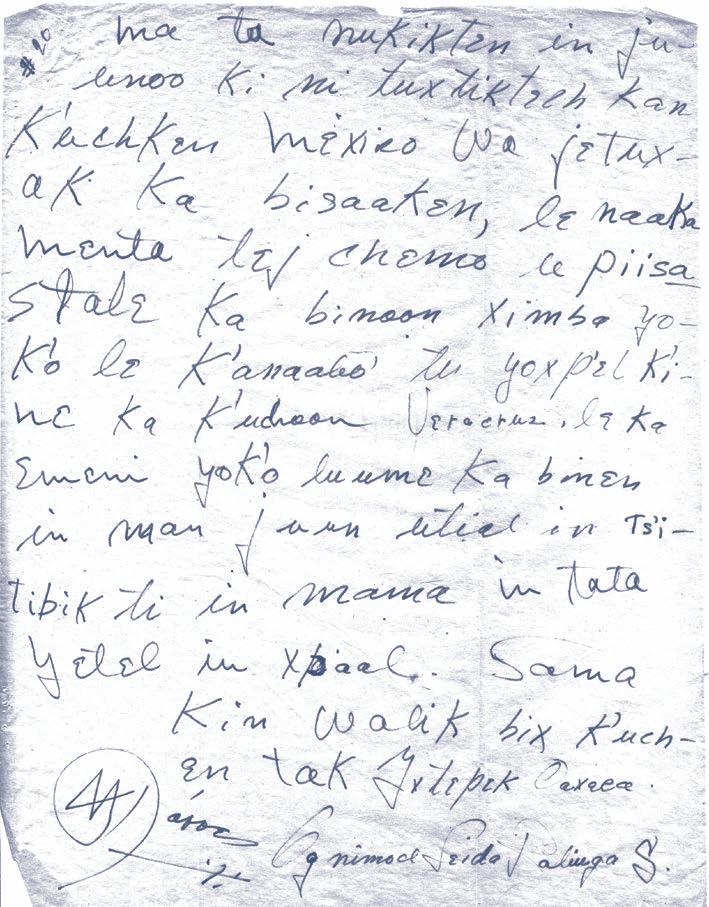 #20
ma ta nukikten in ju-
unoo ki ni tuxtiktech kan
K'uchken México wa jetux-
ak ka bisaaken, le naaka
menta tej chemo le piisa
stale ka binoon ximba yo-
k'o le k'anaabo' tu yoxp'el k'i-
ne ka k'uchoon Veracruz. le ka
emeni yok'o luume ka binen
in man juun utial in Ts'i-
tibik ti in mama in tata
yetel in xpaal. Sama
kin walik bix k'uch-
en tak Ixtepek Oaxaca.